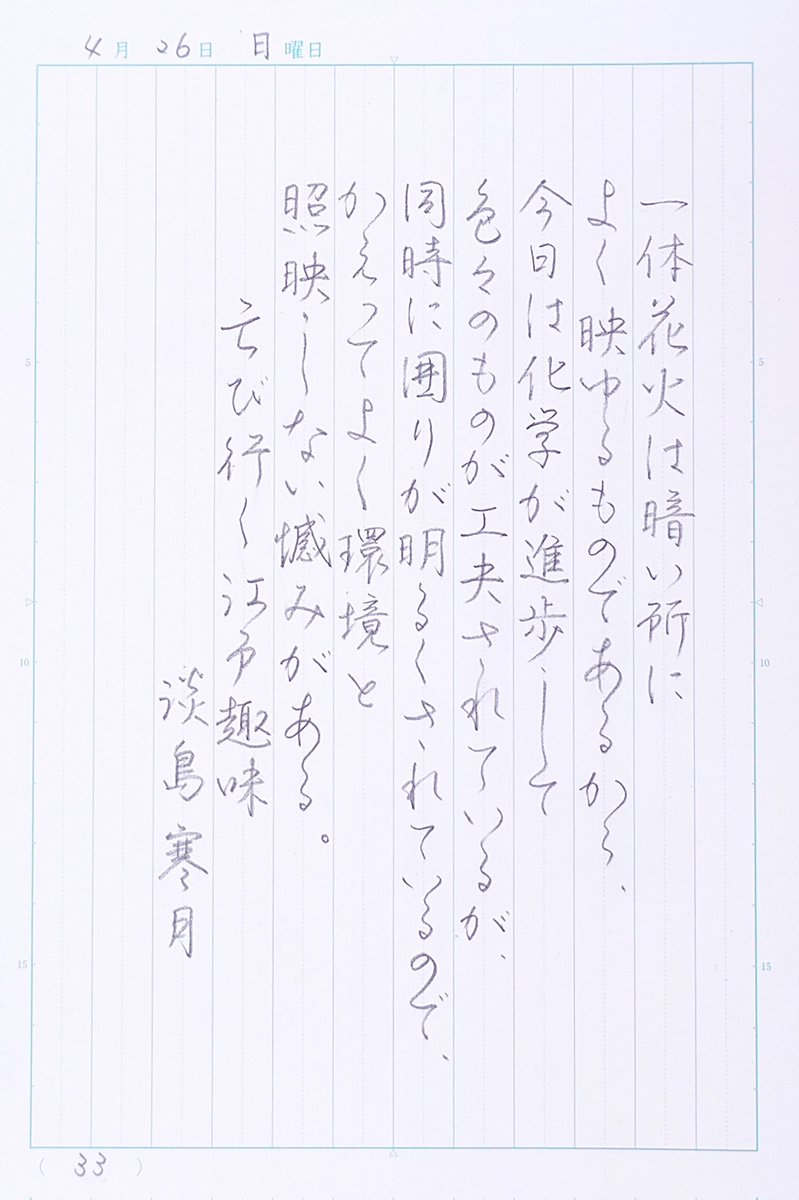 4月26日 日曜日
一体花火は暗い所に
よく映ゆるものであるから、
今日は化学が進歩して
色々のものが工夫されているが、
同時に囲りが明るくされているので、
かえってよく環境と
照映しない憾みがある。
亡び行く江戸趣味
淡島寒月
5
10
15
5
10
15
(33)